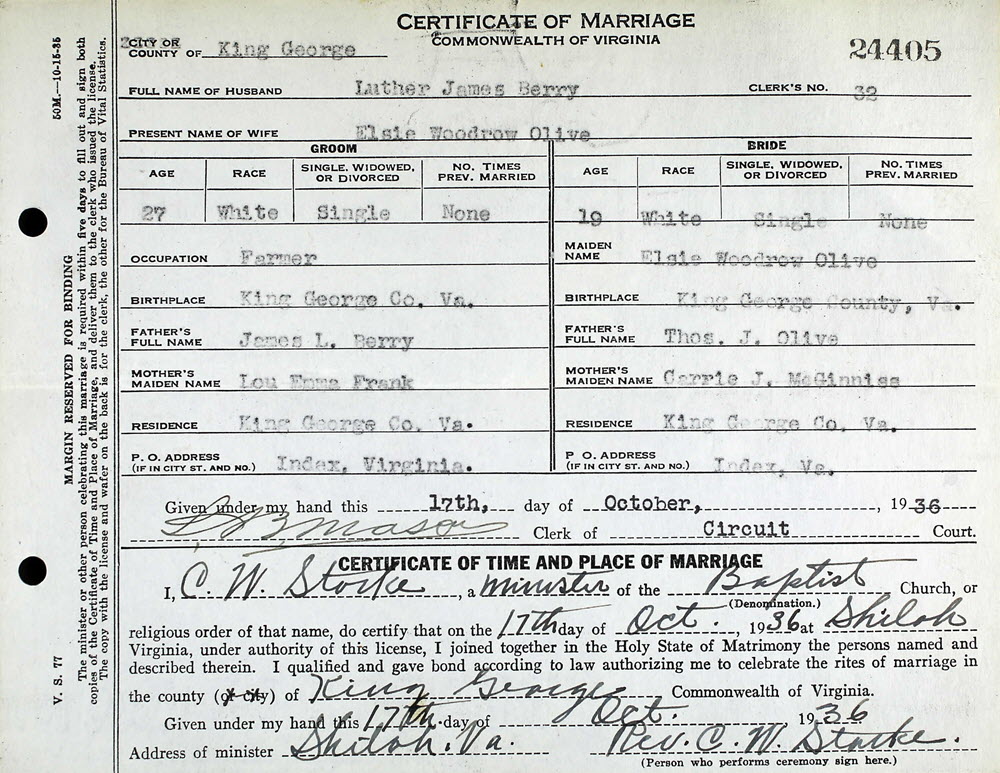 CERTIFICATE OF MARRIAGE
COMMONWEALTH OF VIRGINIA
24405
CITY OR
COUNTY OF King George
FULL NAME OF HUSBAND Luther James Berry CLERK'S NO. 32
PRESENT NAME OF WIFE Elsie Woodrow Olive
GROOM BRIDE
AGE RACE SINGLE, WIDOWED, OR DIVORCED NO. TIMES PREV. MARRIED AGE RACE SINGLE, WIDOWED, OR DIVORCED NO. TIMES PREV. MARRIED
27 White Single None 19 White Single None
OCCUPATION Farmer MAIDEN NAME Elsie Woodrow Olive
BIRTHPLACE King George Co. Va. BIRTHPLACE King George County, Va.
FATHER'S FULL NAME James L. Berry FATHER'S FULL NAME Thos. J. Olive
MOTHER'S MAIDEN NAME Lou Emma Frank MOTHER'S MAIDEN NAME Carrie J. McGinniss
RESIDENCE King George Co. Va. RESIDENCE King George Co. Va.
P. O. ADDRESS (IF IN CITY ST. AND NO.) Index, Virginia. P O. ADDRESS (IF IN CITY ST. AND NO.) Index, Va.
Given under my hand this 17th, day of October, 1936
Mason Clerk of Circuit Court.
CERTIFICATE OF TIME AND PLACE OF MARRIAGE
I, C. W. Storke, a minister of the Baptist Church, or
(Denomination.)
religious order of that name, do certify that on the 17th day of Oct., 1936 at Shiloh
Virginia, under authority of this license, I joined together in the Holy State of Matrimony the persons named and
described therein. I qualified and gave bond according to law authorizing me to celebrate the rites of marriage in
the county (or city) of King George Commonwealth of Virginia.
Given under my hand this 17th. day of Oct. 1936
Address of minister Shiloh. Va. Rev. C. W. Storke.
(Person who performs ceremony sign here.)
V. S. 77 MARGIN RESERVED FOR BINDING 50M.—10-15-35
The minister or other person celebrating this marriage is required within five days to fill out and sign both
copies of the Certificate of Time and Place of Marriage, and deliver them to the clerk who issued the license.
The copy with the license and wafer on the back is for the clerk, the other for the Bureau of Vital Statistics.